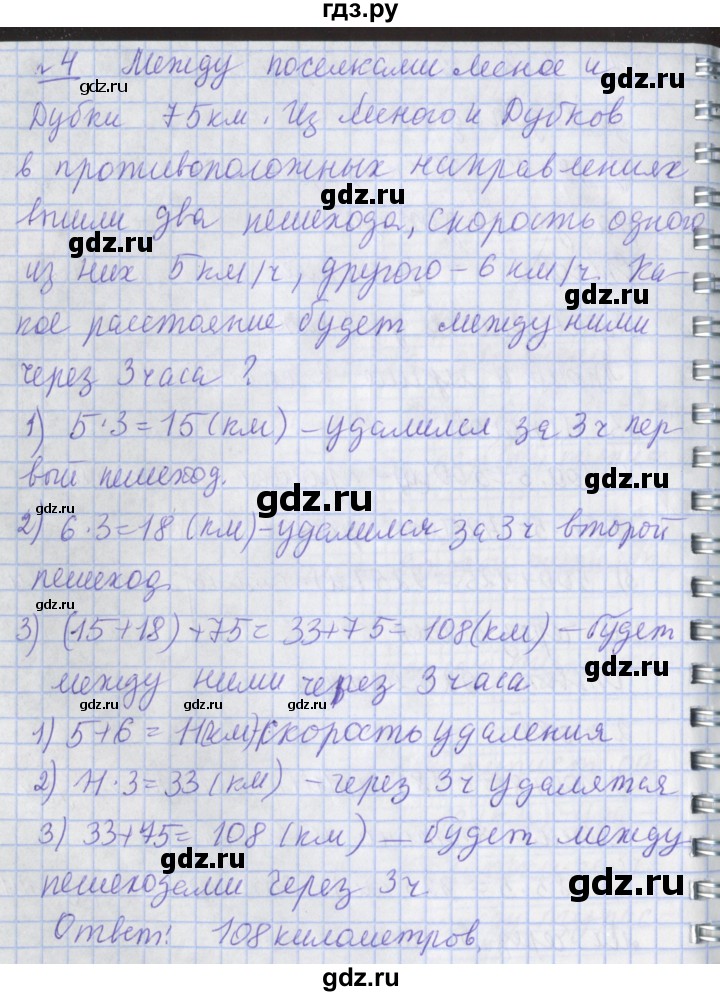 гдз.ру
№4 Между поселками Лесное и
Дубки 75 км. Из Лесного и Дубков
в противоположных направлениях
вышли два пешехода, скорость одного
из них 5 км/ч, другого – 6 км/ч. Ка-
кое расстояние будет между ними
через 3 часа?
1) 5·3=15 (км) – удалился за 3ч пер-
вый пешеход.
2) 6·3=18 (км) – удалился за 3ч второй
пешеход.
3) (15+18)+75= 33+75= 108 (км) – будет
между ними через 3 часа
1) 5+6 = 11(км/ч) скорость удаления
2) 11·3=33 (км) – через 3ч удалятся
3) 33+75= 108 (км) – будет между
пешеходами через 3ч.
Ответ: 108 километров.
gdz.ru
gdz.ru
gdz.ru
gdz.ru
gdz.ru
gdz.ru
gdz.ru
gdz.ru
gdz.ru
gdz.ru
gdz.ru
gdz.ru
gdz.ru
gdz.ru
gdz.ru
gdz.ru
gdz.ru